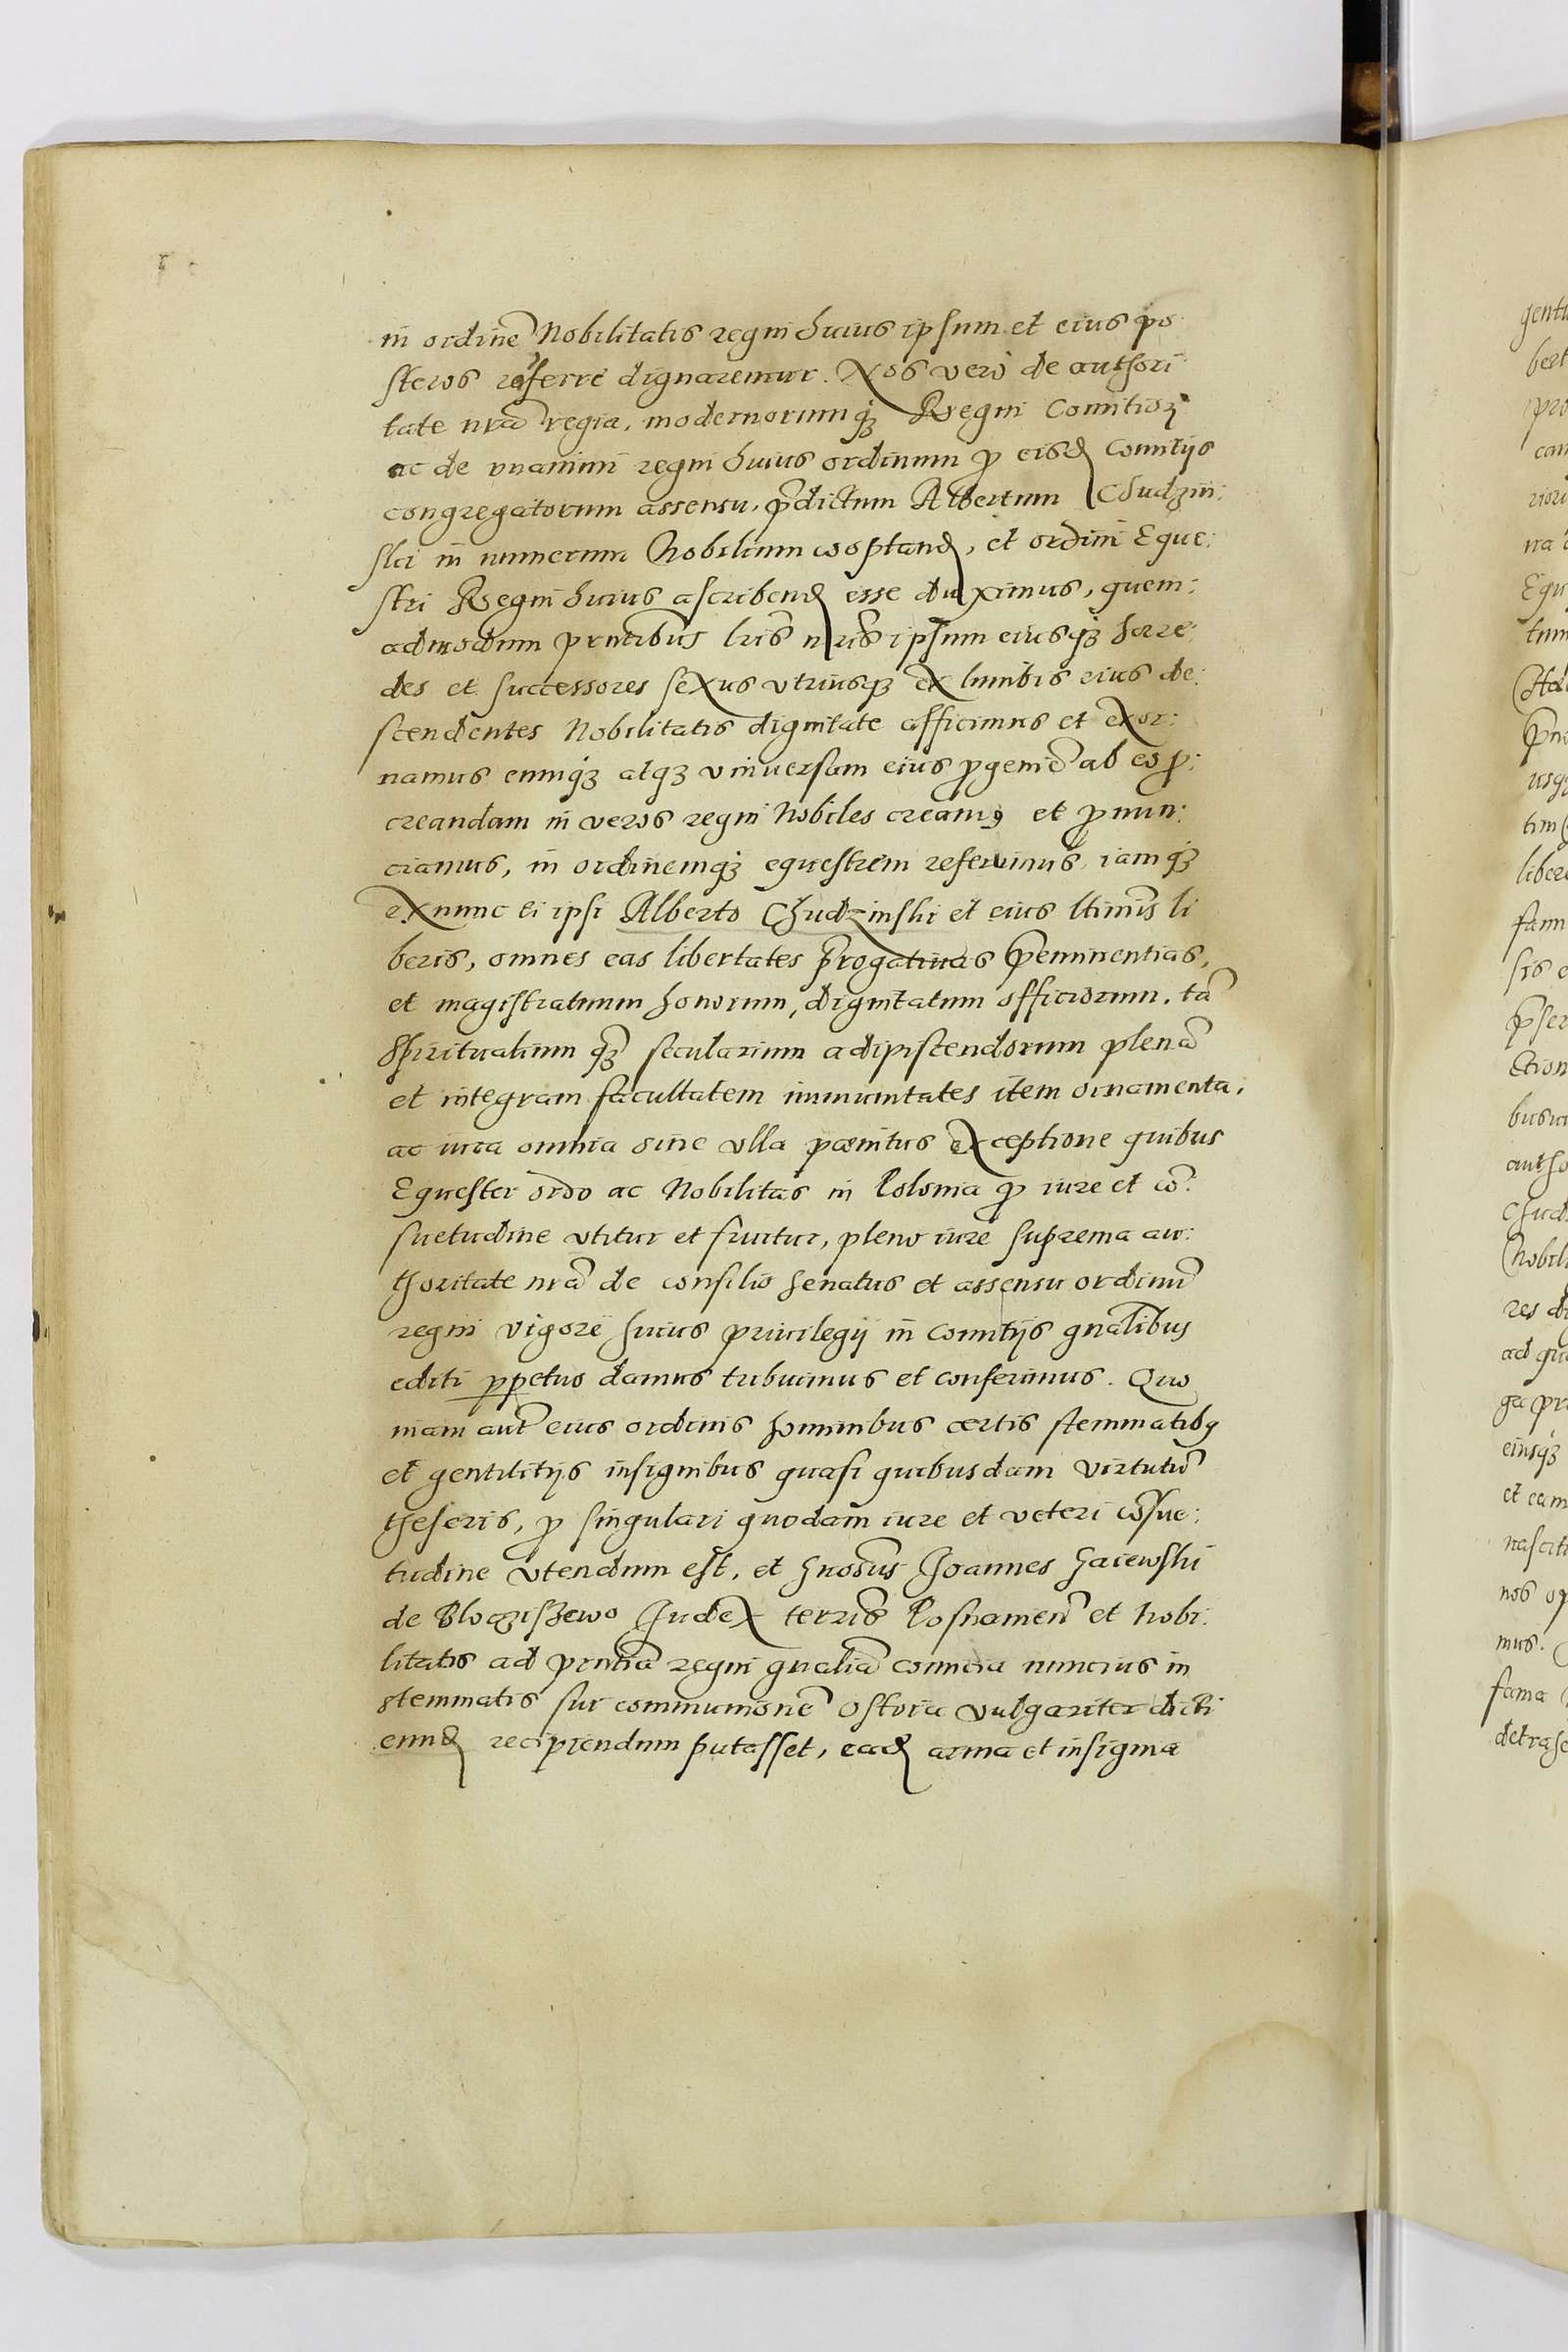 in ordinẽ Nobilitatis regni huius ipsum et eius po
steros referre dignaremur. Nos vero de authori
tate nrã regia, modernorumq₃ Regni Comitioꝝ
ac de vnanimi regni huius ordinum ꝓ eisd Comitijs
congregatorum assensu, p̃dictum Albertum Chudzin:
ski in numerum Nobilium cooptand, et ordini Eque:
stri Regni huius ascribend esse duximus, quem:
admodum pntibus lris nris ipsum eiusq₃ haere:
des et successores sexus vtriusq₃ ex lumbis eius de:
scendentes Nobilitatis dignitate afficimus et exor:
namus eumq₃ atq₃ vniuersam eius ꝓgeniẽ ab eo ꝓ:
creandam in veros regni Nobiles creamꝰ et ꝓnun:
ciamus, in ordinemq₃ equestrem referimus, iamq₃
ex nunc ei ipsi Alberto Chudzinski et eius ltimis li
beris, omnes eas libertates p̃rogatiuas p̃eminentias,
et magistratuum honorum, dignitatum officiorum, tã
Spiritualium q₃ secularium adipiscendorum plenã
et integram facultatem immunitates item ornamenta,
ac iura omnia sine vlla paenitus exceptione quibus
Equester ordo ac Nobilitas in Polonia ꝓ iure et cõ:
suetudine vtitur et fruitur, pleno iure suprema au:
thoritate nrã de consilio Senatus et assensu ordinũ
regni vigore huius priuilegij in Comitijs gnalibus
editi ꝑpetuo damus tribuimus et conferimus. Quo
niam aut̃ eius ordinis hominibus certis stemmatibꝫ
et gentilitijs insignibus quasi quibusdam virtutũ
theseris, ꝓ singulari quodam iure et veteri cõsue:
tudine vtendum est, et gnosus Joannes Gaiewski
de Bloczissewo Judex terris Posnamen et Nobi:
litatis ad pntia regni gnalia comitia nuncius in
stemmatis sui communionẽ Ostoia vulgariter dicti
eund recipiendum putasset, ead arma et insignia